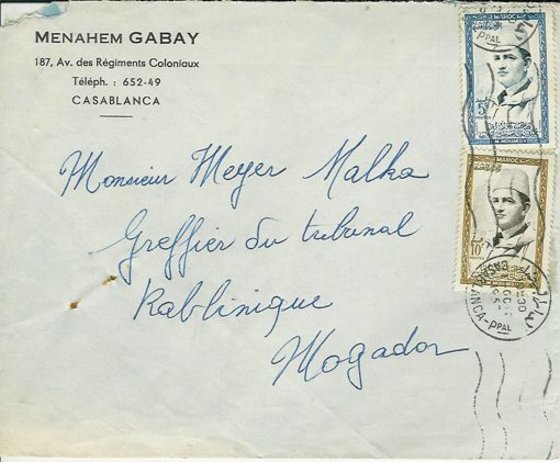 MENAHEM GABAY
187, Av. des Régiments Coloniaux
Téléph. : 652-49
CASABLANCA
Monsieur Meyer Malka
Greffier du tribunal
Rablinique
Mogador
MAROC
5
MAROC
10
PPAL
CASABLANCA-PPAL